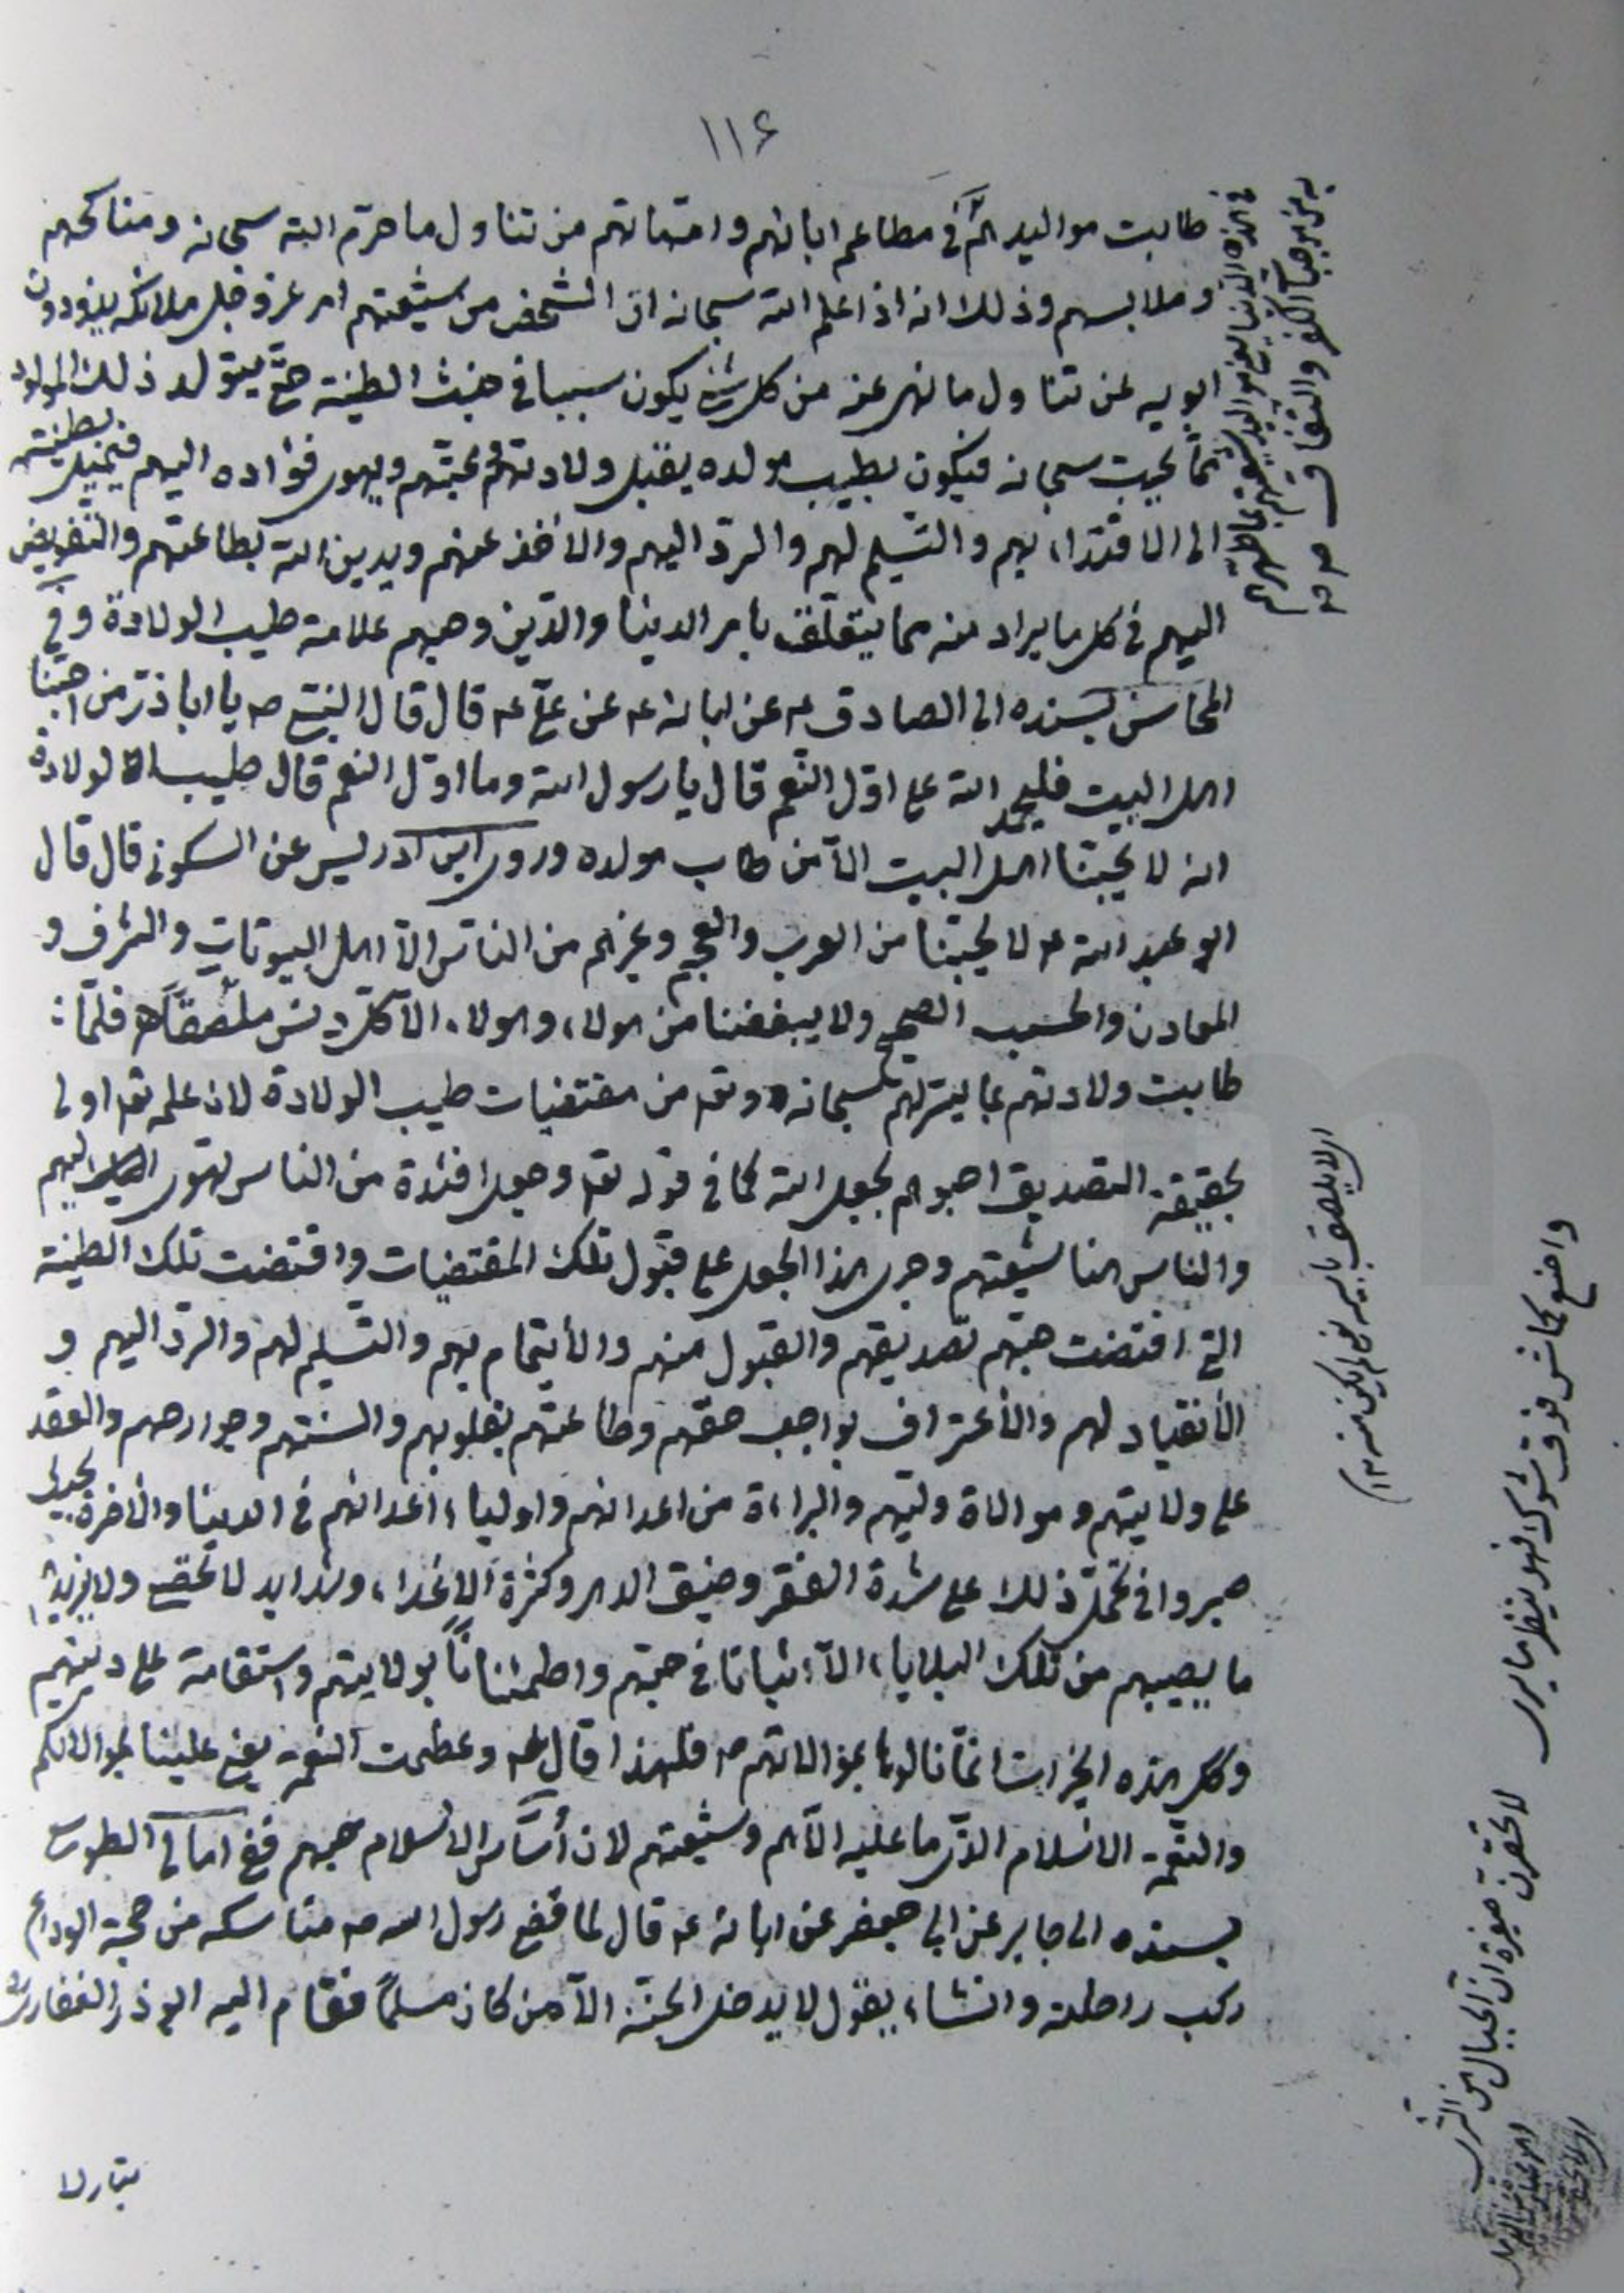 ١١۶
طابت مواليدهم في مطاعم ابائهم وامهاتهم من تناول ما حرم الله سبحانه ومناكحهم
وملابسهم وذلك انه اذا علم الله سبحانه ان الشخص من شيعتهم امر عز وجل ملائكه يذودون
ابويه عن تناول ما نهى عنه من كل شئ يكون سببا في خبث الطينة حتى يتولد ذلك المولود
كما يحب سبحانه فيكون بطيب مولده يقبل ولادتهم ومحبتهم ويهوى فؤاده اليهم فيميل بطينته
الى الاقتداء بهم والتسليم لهم والرد اليهم والاخذ عنهم ويدين الله بطاعتهم والتفويض
اليهم في كل ما يراد منه مما يتعلق بامر الدنيا والدين وحبهم علامة طيب الولادة وفي
المحاسن بسنده الى الصادق ع عن ابائه ع عن علي ع قال قال النبي ص يا اباذر من احبنا
اهل البيت فليحمد الله على اول النعم قال يا رسول الله وما اول النعم قال طيب الولادة
انه لا يحبنا اهل البيت الا من طاب مولده وروى ابن ادريس عن السكوني قال قال
ابو عبد الله ع لا يحبنا من العرب والعجم وغيرهم من الناس الا اهل البيوتات والشرف و
المعادن والحسب الصحيح ولا يبغضنا من هولاء وهولاء الا كل دنس ملصق اه فلما
طابت ولادتهم بما يسر لهم سبحانه وتع من مقتضيات طيب الولادة لان علمه تع اولى
بحقيقة التصديق احبوهم بجعل الله كما في قوله تع وجعل افئدة من الناس تهوى اليهم
والناس هنا شيعتهم وجرى هذا الجعل على قبول تلك المقتضيات واقتضت تلك الطينة
التي اقتضت حبهم تصديقهم والقبول منهم والأيتمام بهم والتسليم لهم والرد اليهم و
الأنقياد لهم والأعتراف بواجب حقهم وطاعتهم بقلوبهم والسنتهم وجوارحهم والعقد
على ولايتهم وموالاة وليهم والبراءة من اعدائهم واولياء اعدائهم في الدنيا والاخرة بحيث
صبروا في تحمل ذلك على شدة الفقر وضيق الدهر وكثرة الاعداء وشدايد لا تحصى ولا يزيد
ما يصيبهم من تلك البلايا الا ثباتا في حبهم واطمئنانا بولايتهم واستقامة على دينهم
وكل هذه الخيرات انما نالوها بموالاتهم ص فلهذا قال ع وعظمت النعمة يعني علينا بموالاتكم
والنعمة الاسلام الذى ما عليه الا هم وشيعتهم لان أساس الاسلام حبهم ففي امالي الطوسي
بسنده الى جابر عن ابي جعفر عن ابائه ع قال لما قضى رسول الله ص مناسكه من حجة الوداع
ركب راحلته وانشاء يقول لا يدخل الجنة الا من كان مسلما فقام اليه ابو ذر الغفاري
من موجبات الكفر والنفاق
لا تحقرن صغيرة ان الجبال من
واصنع كماش فوق شوك